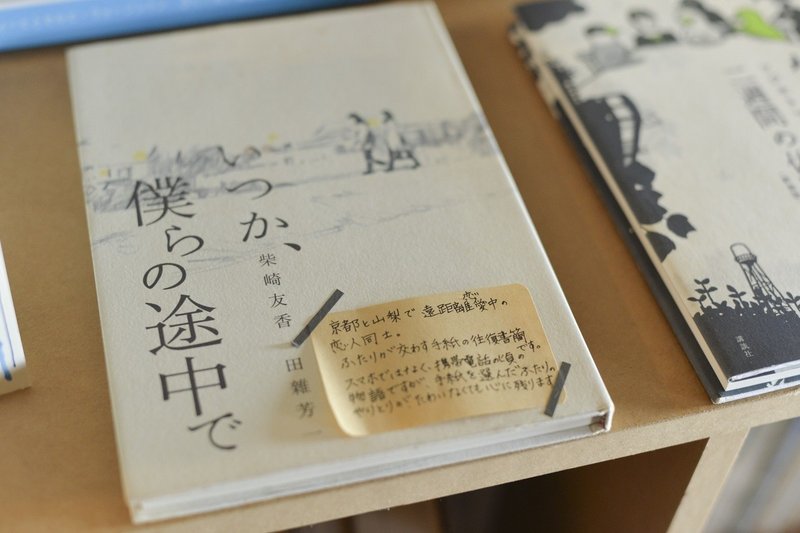 いつか、
僕らの途中で
柴崎友香
田雜芳一
京都と山梨で遠距離恋愛中の
恋人同士。
ふたりが交わす手紙の往復書簡
スマホではなく、携帯電話の頃の
です。
物語ですが、手紙を選んだふたりの
やりとりが、たわいなくても心に残ります
二階
の
講談社